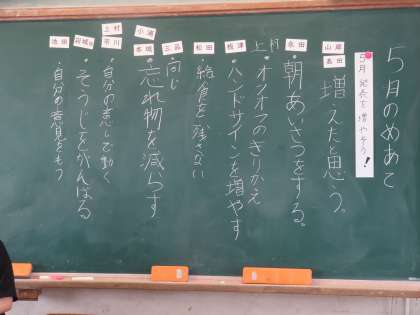 5月のめあて
5月 発表を増やそう！
山岸
高田
増えたと思う。
永田
・朝あいさつをする。
上村
・オンオフのきりかえ
根津
・ハンドサインを増やす
松田
・給食を残さない
三品
同じ
小浦
高城
・忘れ物を減らす
上村
市川
・自分の意志で動く
岩城
・そうじをがんばる
池田
・自分の意見をもつ